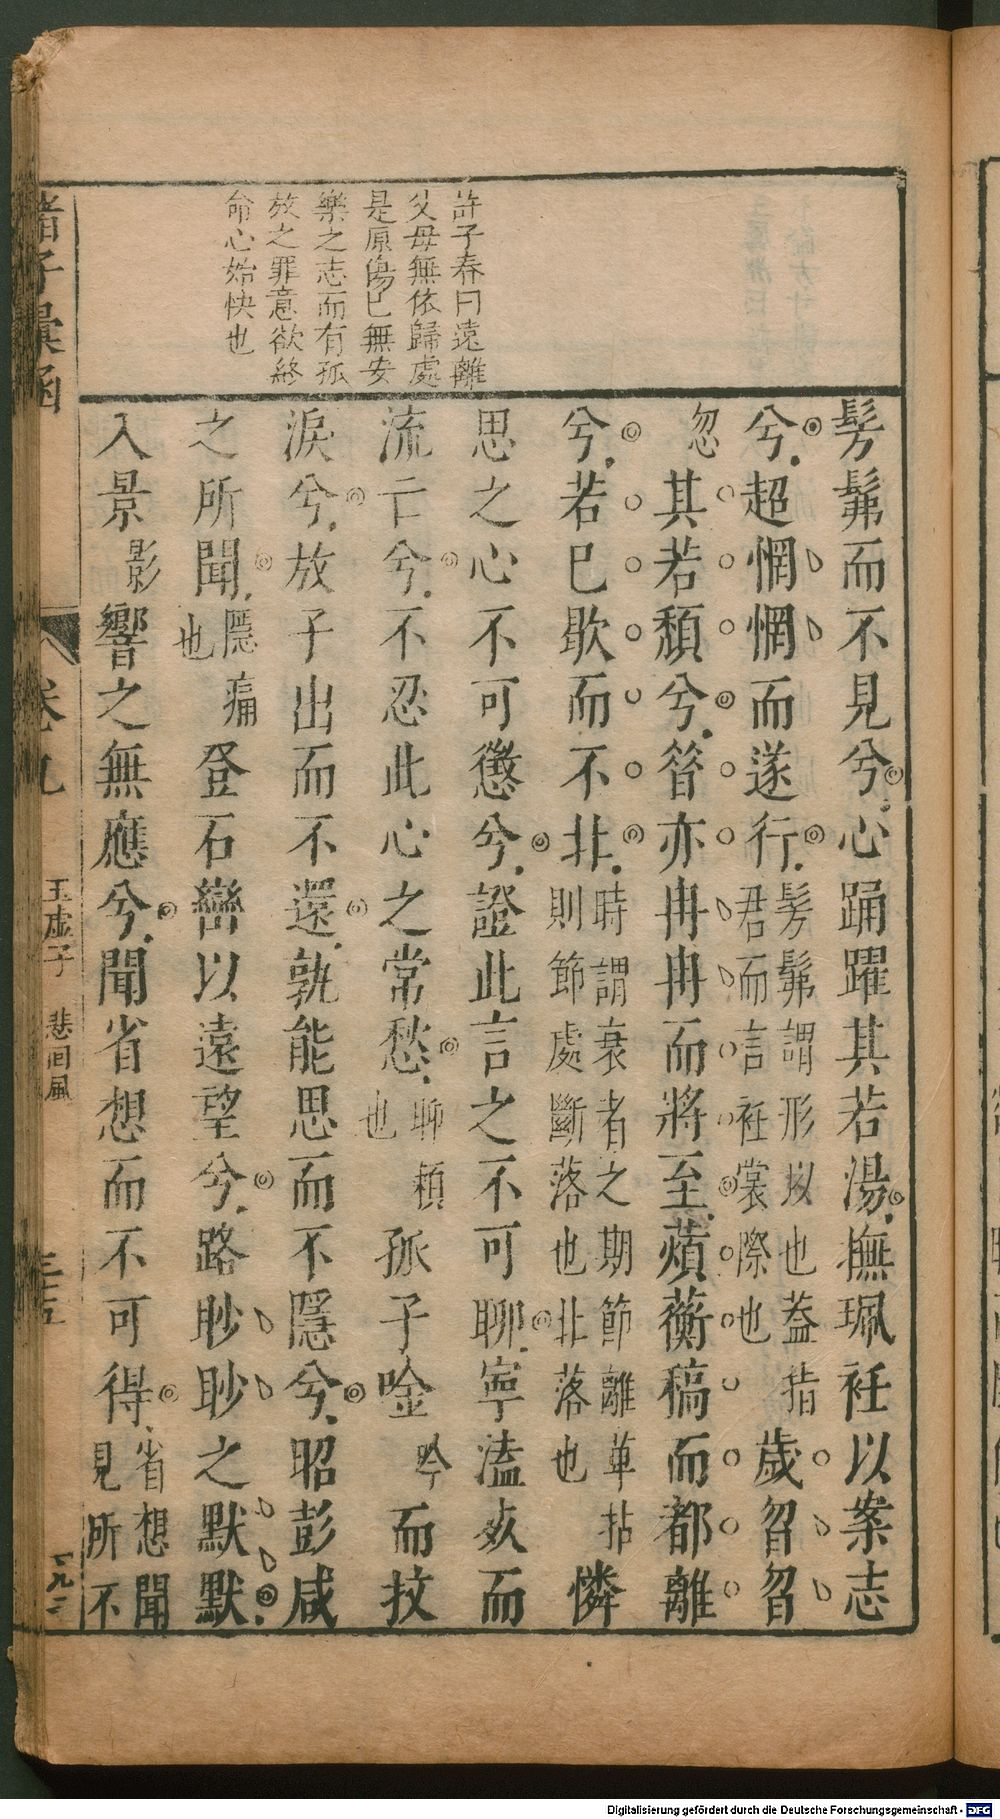 許子春曰遠離
父母無依歸處
是原傷巳無安
樂之志而有孤
放之罪意欲終
命心始快也
髣髴而不見兮心踊躍其若湯撫珮衽以案志
兮超惘惘而遂行髣髴謂形以也葢指君而言衽裳際也歲曶曶
忽其若頹兮䇘亦冉冉而將至薠蘅稿而都離
兮若巳歇而不北時謂衰者之期節離草拈則節處斷落也北落也憐
思之心不可懲兮證此言之不可聊寧溘奺而
流亡兮不忍此心之常愁聊賴也孤子唫吟而抆
淚兮放子出而不還孰能思而不隱兮昭彭咸
之所聞隱痛也登石巒以遠望兮路眇眇之默默
入景影響之無應兮聞省想而不可得省想聞見所不
諸子彙函
卷九
玉虛子
悲回風
三十五
一九二
Digitalisierung gefördert durch die Deutsche Forschungsgemeinschaft - DFG